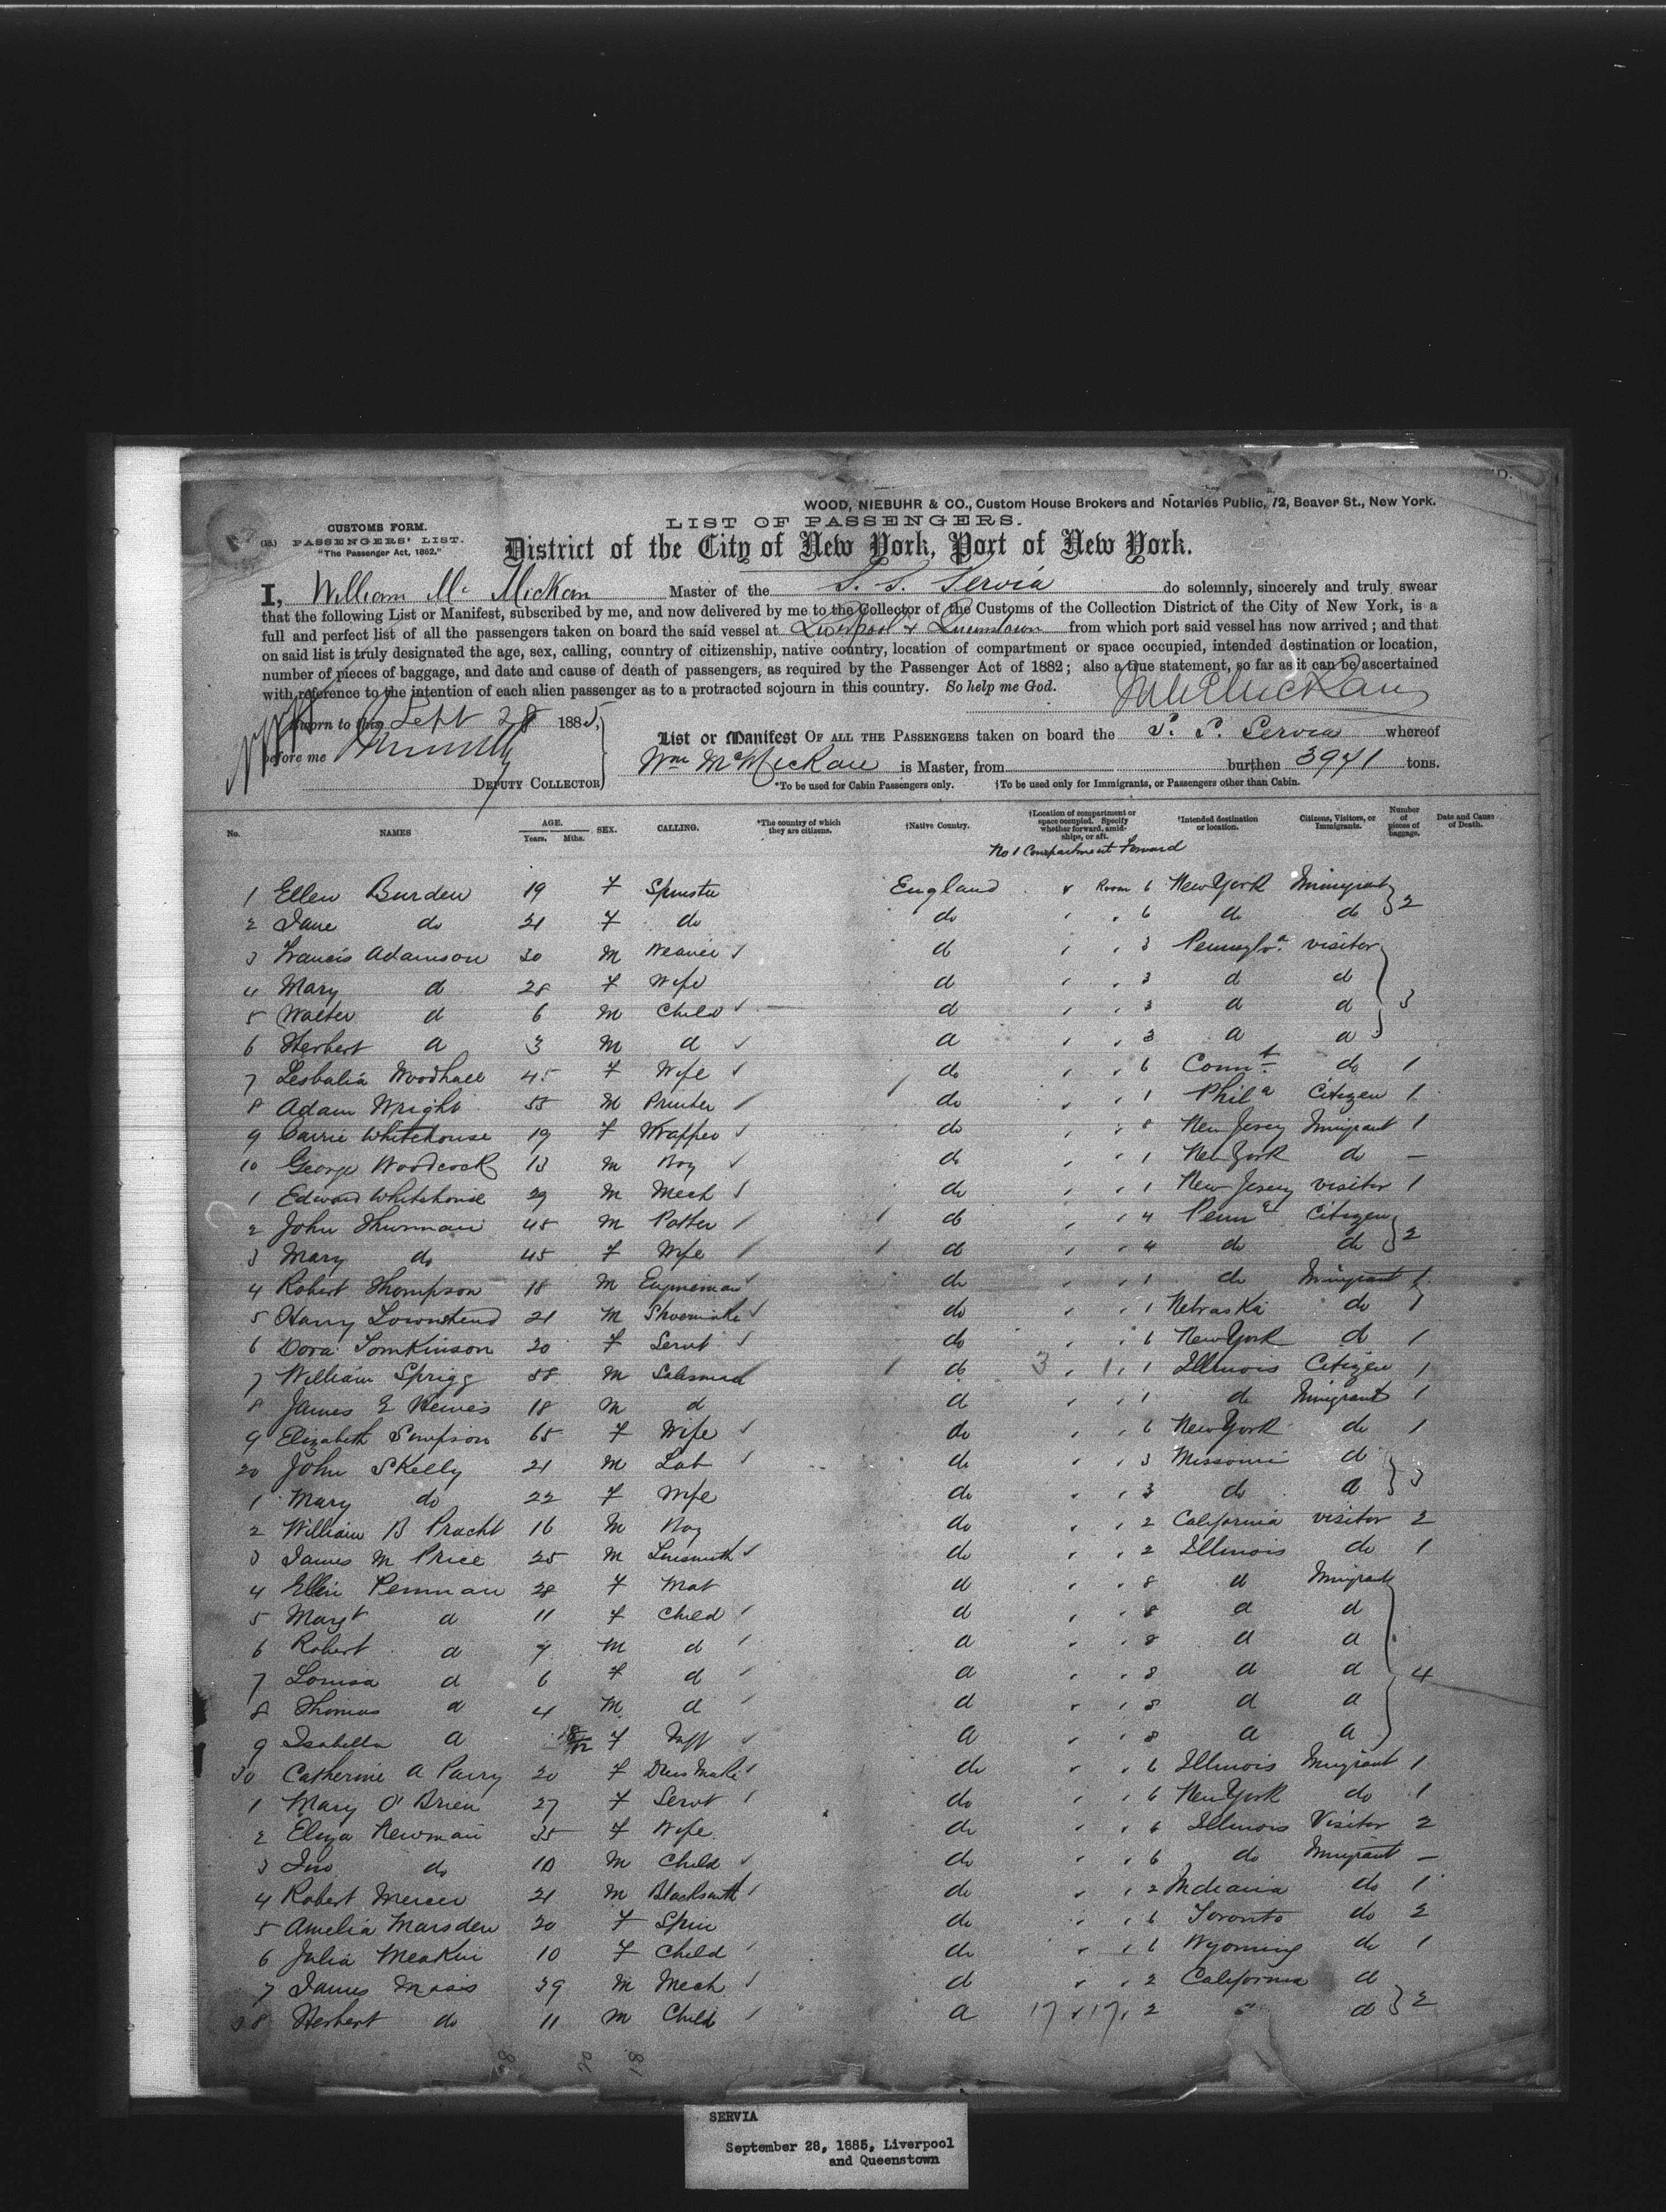 WOOD, NIEBUHR & CO., Custom House Brokers and Notaries Public, 72, Beaver St., New York.
LIST OF PASSENGERS.
CUSTOMS FORM.
PASSENGERS' LIST.
"The Passenger Act, 1882."
District of the City of New York, Port of New York.
I, William Mc Mickan Master of the S. S. Servia do solemnly, sincerely and truly swear
that the following List or Manifest, subscribed by me, and now delivered by me to the Collector of the Customs of the Collection District of the City of New York, is a
full and perfect list of all the passengers taken on board the said vessel at Liverpool & Queenstown from which port said vessel has now arrived; and that
on said list is truly designated the age, sex, calling, country of citizenship, native country, location of compartment or space occupied, intended destination or location,
number of pieces of baggage, and date and cause of death of passengers, as required by the Passenger Act of 1882; also a true statement, so far as it can be ascertained
with reference to the intention of each alien passenger as to a protracted sojourn in this country. So help me God.
Sworn to this Sept 28 1885,
before me
DEPUTY COLLECTOR
List or Manifest OF ALL THE PASSENGERS taken on board the S. S. Servia whereof
Wm McMickan is Master, from burthen 3971 tons.
*To be used for Cabin Passengers only. †To be used only for Immigrants, or Passengers other than Cabin.
No. NAMES AGE. Years. Mths. SEX. CALLING. *The country of which they are citizens. †Native Country. †Location of compartment or space occupied. Specify whether forward, amidships, or aft. †Intended destination or location. Citizens, Visitors, or Immigrants. Number of pieces of baggage. Date and Cause of Death.
No 1 Compartment Forward
1 Ellen Burden 19 F Spinster England " Room 6 New York Immigrant 2
2 Jane do 21 F do do " " 6 do do
3 Francis Adamson 30 M Weaver d " " 3 Pennsylva visitor
4 Mary d 28 F Wife d " " 3 d d
5 Walter d 6 M Child d " " 3 d d 3
6 Herbert d 3 M d d " " 3 d d
7 Woodhall 45 F Wife do " " 6 Connt do 1
8 Adam Wright 55 M Printer do " " 1 Phila Citizen 1
9 Carrie Whitehouse 19 F do " " 8 New Jersey Immigrant 1
10 George Woodcock 13 M Boy do " " 1 New York do —
1 Edward Whitehouse 29 M Mech do " " 1 New Jersey visitor 1
2 John Thurman 45 M Potter do " " 4 Penna Citizen 2
3 Mary do 45 F Wife d " " 4 do do
4 Robert Thompson 18 M Engineman do " " 1 do Immigrant 1
5 Harry 21 M Shoemaker do " " 1 Nebraska do 1
6 Dora Tomkinson 20 F Servt do " " 6 New York do 1
7 William Sprigg 58 M Salesman d 3 " 1 " 1 Illinois Citizen 1
8 James E 18 M d d " " 1 do Immigrant 1
9 Elizabeth Simpson 65 F Wife do " " 6 New York do 1
20 John Skelly 21 M Lab do " " 3 Missouri d 3
1 Mary do 22 F Wife do " " 3 do d
2 William B Pracht 16 M Boy do " " 2 California visitor 2
3 James M Price 25 M do " " 2 Illinois do 1
4 Ellen Penman 28 F Mat d " " 8 d Immigrant
5 Margt d 11 F Child d " " 8 d d
6 Robert d M d d " " 8 d d
7 Louisa d 6 F d d " " 8 d d 4
8 Thomas d 4 M d d " " 8 d d
9 Isabella d F Inft d " " 8 d d
30 Catherine A Parry 20 F Dressmaker do " " 6 Illinois Immigrant 1
1 Mary O'Brien 27 F Servt do " " 6 New York do 1
2 Eliza Newman 35 F Wife do " " 6 Illinois Visitor 2
3 Jno do 10 M Child do " " 6 do Immigrant —
4 Robert Mercer 21 M Blacksmith do " " 2 Indiana do 1
5 Amelia Marsden 20 F Spin do " " 6 Toronto do 2
6 Julia Meakin 10 F Child do " " 6 Wyoming do 1
7 James 39 M Mech d " " 2 California d 2
38 Herbert do 11 M Child d 17 " 17 " 2 " d
28 20 18
SERVIA
September 28, 1885, Liverpool
and Queenstown